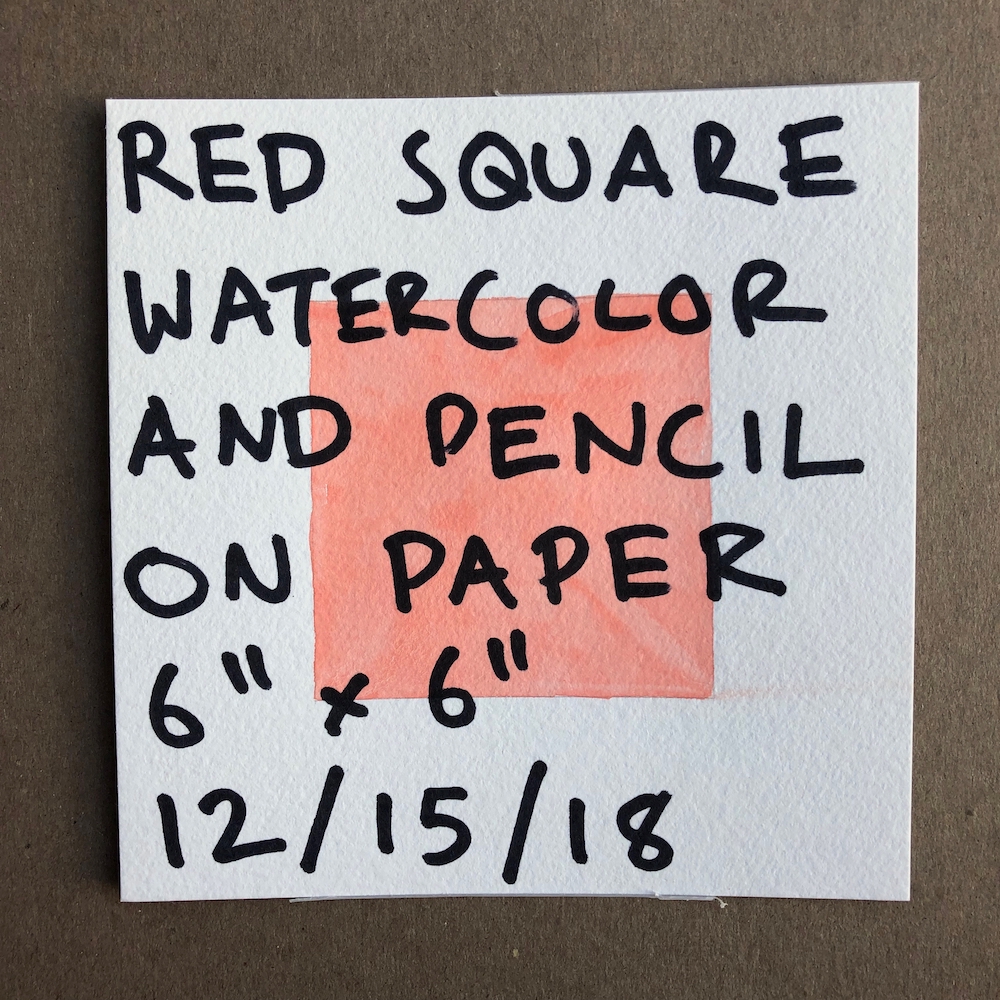 RED SQUARE
WATERCOLOR
AND PENCIL
ON PAPER
6" x 6"
12/15/18